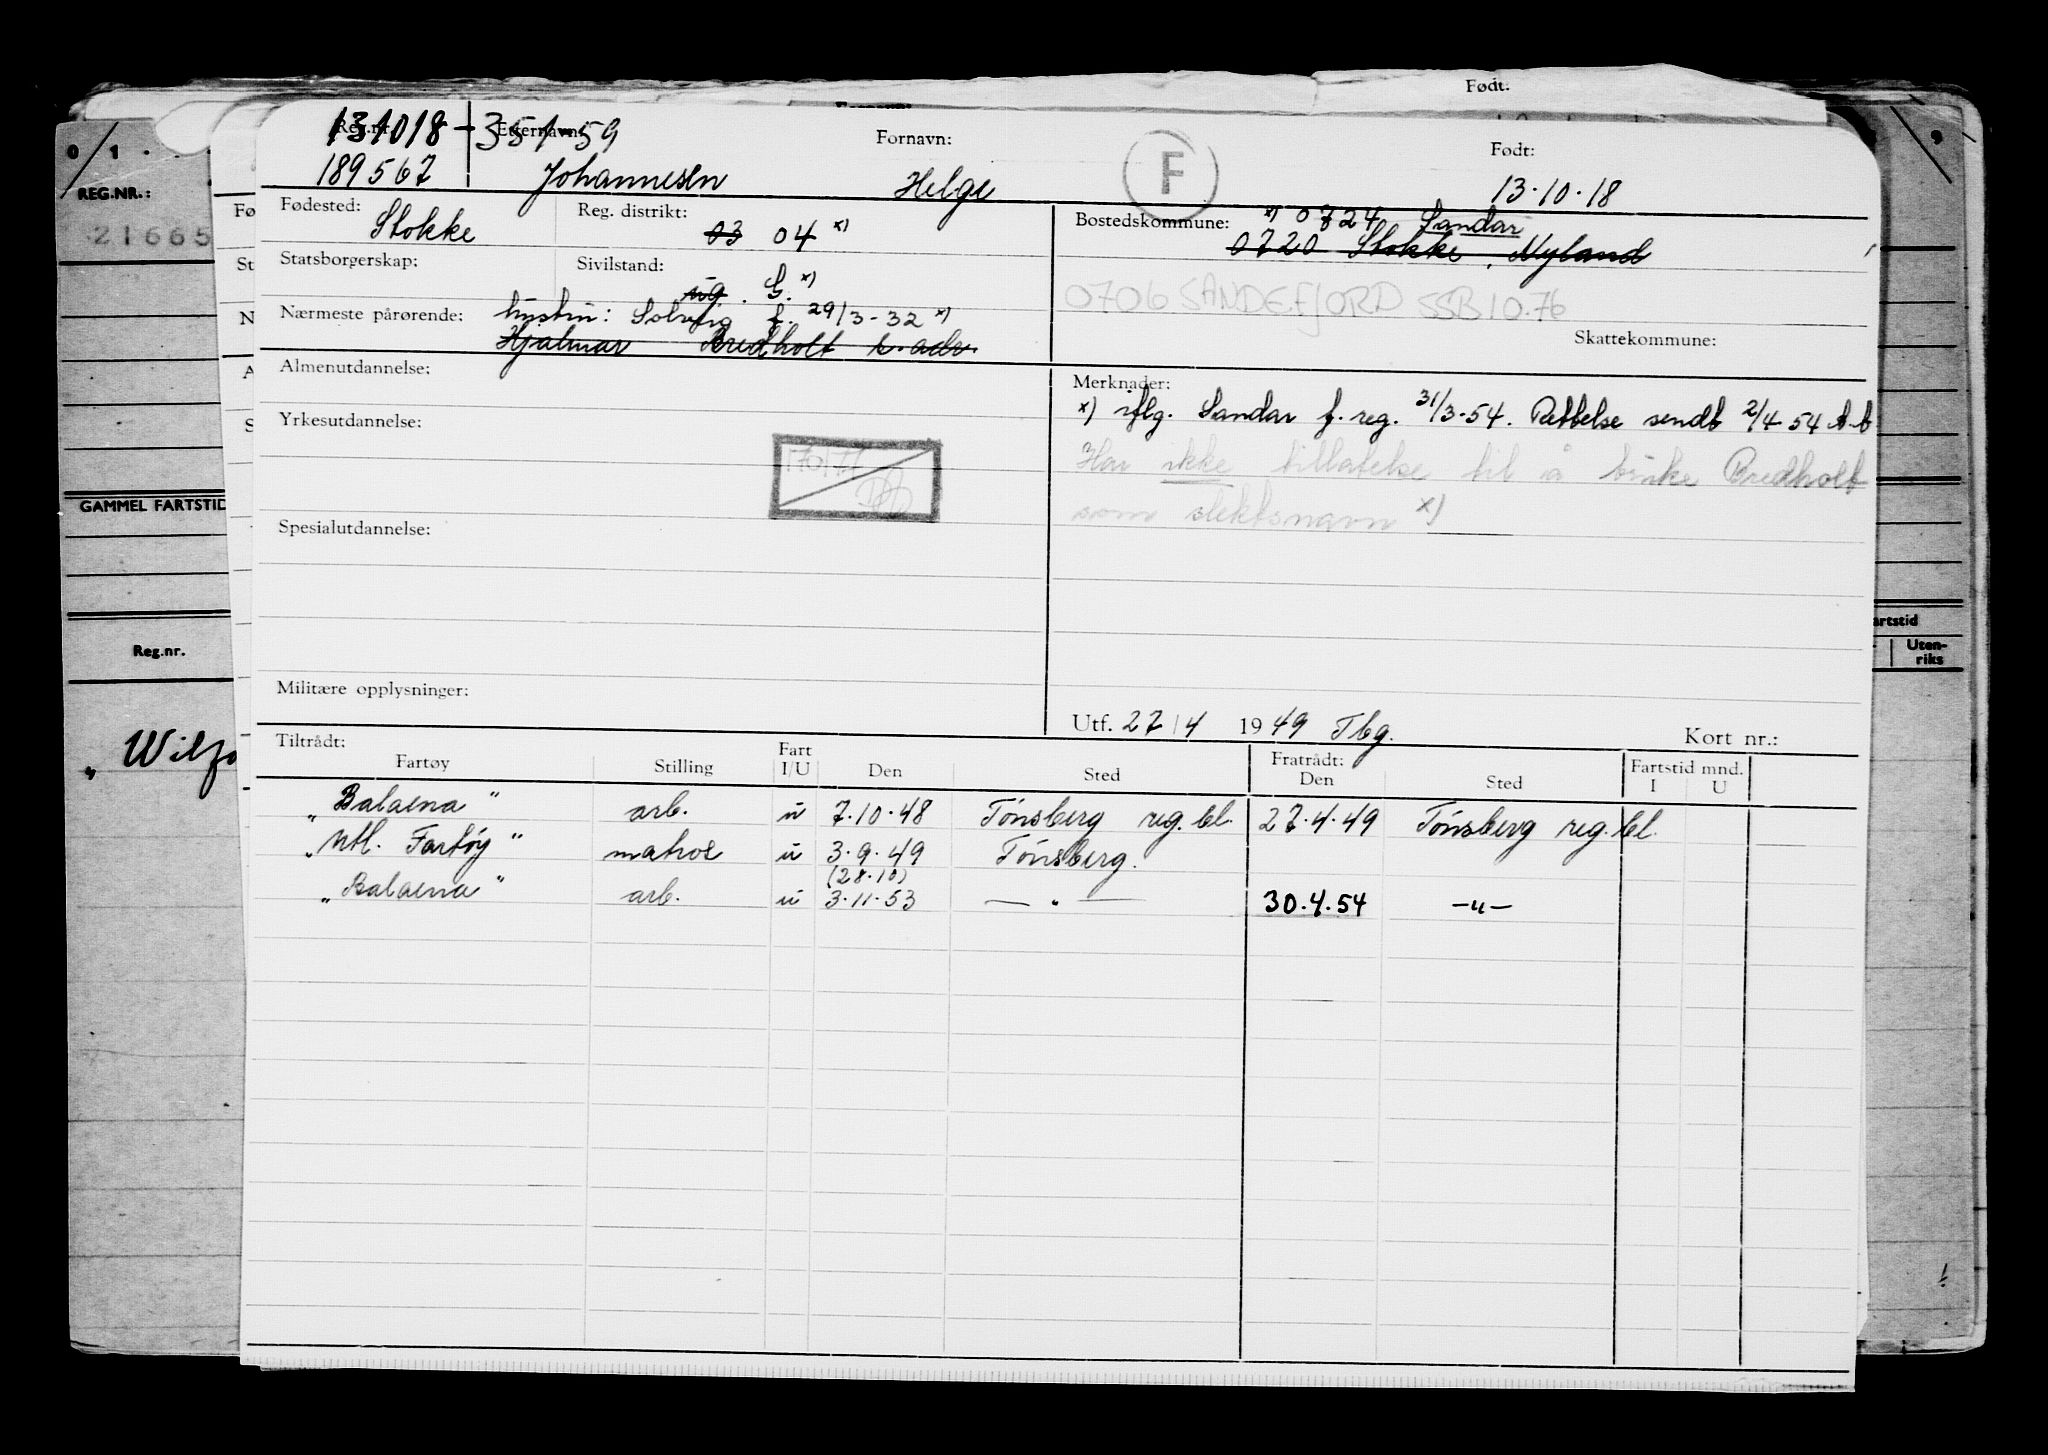 Født:
Reg.nr. Etternavn: Fornavn: Født:
131018-35159
189567 Johannesen Helge F 13.10.18
Fødested: Stokke Reg. distrikt: 03 04 x) Bostedskommune: x) 0724 Sandar
0720 Stokke, Nyland
Statsborgerskap: Sivilstand: ug. G. x)
0706 SANDEFJORD SSB 10.76
Nærmeste pårørende: hustru: Solveig f. 29/3-32 x)
Hjalmar Bredholt s. adr.
Skattekommune:
Almenutdannelse:
Merknader:
x) iflg. Sandar f.reg. 31/3-54. Rettelse sendt 2/4 54 A.A
Har ikke tillatelse til å bruke Bredholt
som slektsnavn x)
Yrkesutdannelse:
Spesialutdannelse:
Militære opplysninger:
Utf. 27/4 1949 Tbg. Kort nr.:
Tiltrådt: Fratrådt: Fartstid mnd.
Fartøy Stilling Fart I/U Den Sted Den Sted I U
"Balaena" arb. u 7.10.48 Tønsberg reg.bl. 27.4.49 Tønsberg reg.bl.
"Utl. Fartøy" matros u 3.9.49 Tønsberg.
(28.10)
"Balaena" arb. u 3.11.53 — " — 30.4.54 —"—
0 1
REG.NR.:
21665
GAMMEL FARTSTID
Reg.nr.
"Wilfo
9
artstid
Uten-
riks